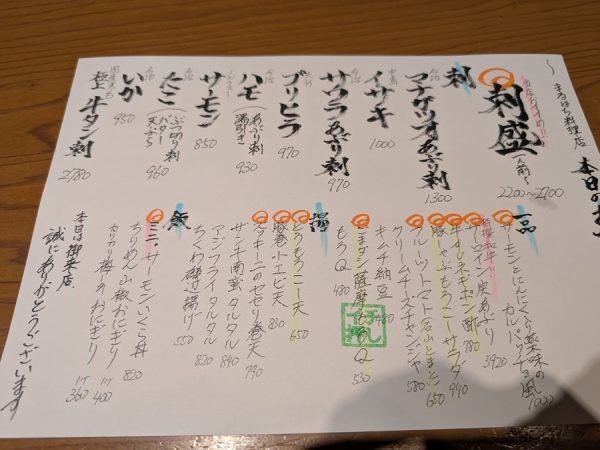 まるはち料理店
本日のお
当店おすすめ!!
刺盛(一人前〜) 2200〜2700
刺
マナガツオあぶり刺 1300
イサキ 1000
サワラあぶり刺 970
ブリヒラ 970
ハモ(あぶり刺 湯引き) 930
サーモン 850
たこ(ぶつ切り刺 バター 天ぷら) 960
いか 950
極上 牛タン刺 2780
一品
サーモンとにんにく薬味のカルパッチョ風 1020
サーロイン炭あぶり 3920
780
豚しゃぶもろこーサラダ 940
フルーツトマト 650
クリームチーズチャンジャ 580
キムチ納豆 480
ごまダシ薩摩 530
もろQ 480
イチ押し
揚
とうもろこし天 650
豚巻小エビ天 830
ズッキーニのセセリ巻天 790
サンチ南蛮タルタル 890
アジフライタルタル 820
ちくわ磯辺揚げ 550
飯
ミニサーモンいくら丼 820
ちりめん山椒おにぎり 1ケ 400
カリカリ梅しそおにぎり 1ケ 360
本日は御来店
誠にありがとうございます